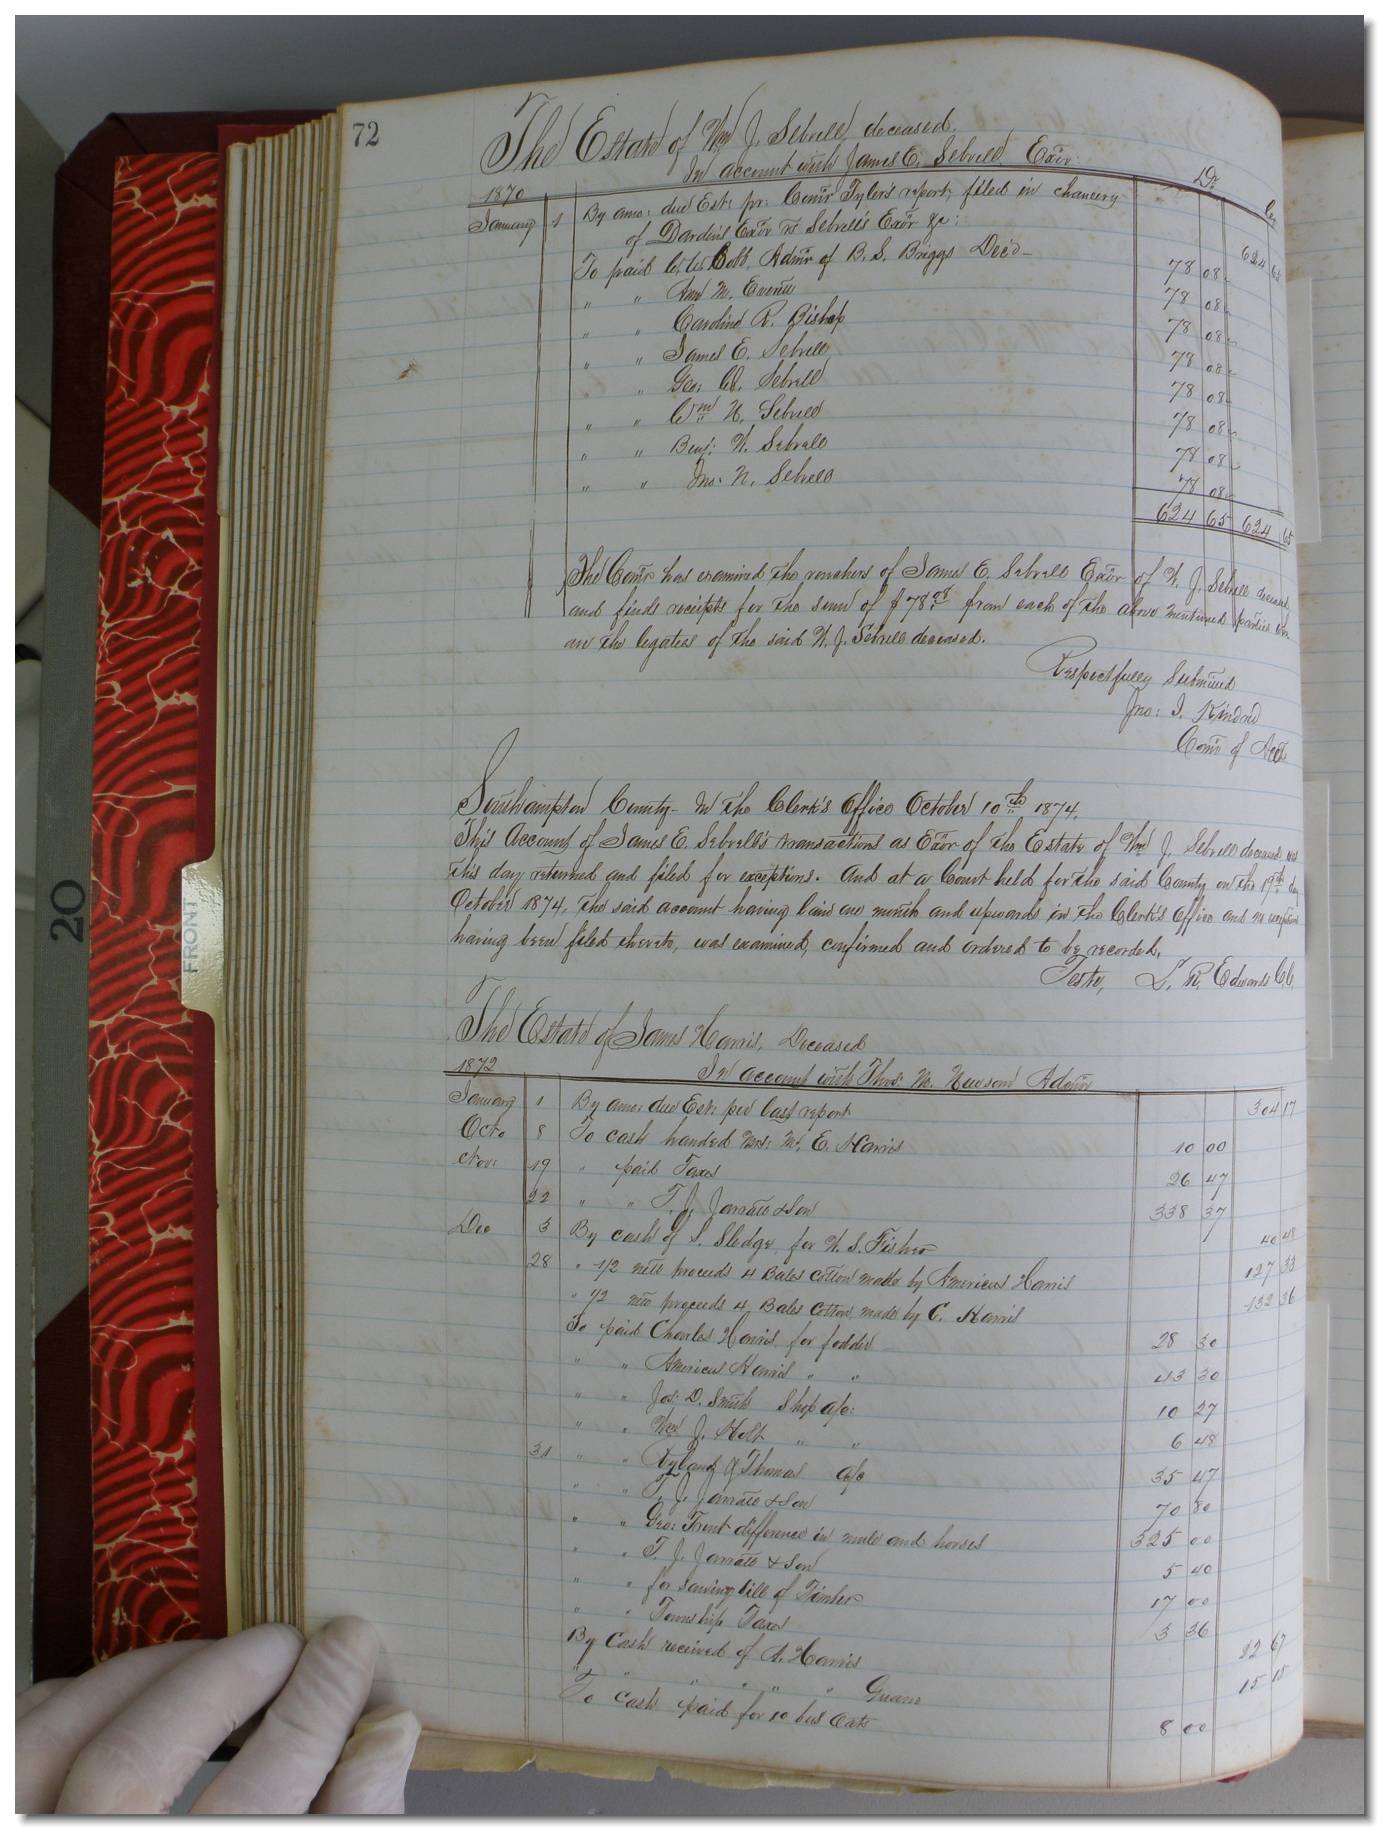 72
The Estate of Wm J. Sebrell deceased.
In account with James E. Sebrell Exor
1870 Dr. Cr.
January 1 By amo: due Est: pr: Comr Tyler's report, filed in chancery
of Darden's Exor vs Sebrell's Exor &c: 624 65
To paid Cobb, Admr of B. S. Briggs Dec'd 78 08
" " M. Everett 78 08
" " Caroline R. Bishop 78 08
" " James E. Sebrell 78 08
" " Geo: Sebrell 78 08
" " Wm N. Sebrell 78 08
" " Benj: W. Sebrell 78 08
" " Jno: N. Sebrell 78 08
624 65 624 65
The Comr has examined the vouchers of James E. Sebrell Exor of W. J. Sebrell deceased
and finds receipts for the sum of $78 08 from each of the above mentioned parties who
are the legatees of the said W. J. Sebrell deceased.
Respectfully Submitted
Jno: J. Kindred
Comr of Accts
Southampton County - In the Clerk's Office October 10th 1874.
This Account of James E. Sebrell's transactions as Exor of the Estate of Wm J. Sebrell deceased was
this day returned and filed for exceptions. And at a Court held for the said County on the 19th day
October 1874, the said account having laid one month and upwards in the Clerk's Office and no exceptions
having been filed thereto, was examined, confirmed and ordered to be recorded.
Teste, L. R. Edwards C.C.
The Estate of James Harris, Deceased
1872 In account with Thos: M. Newsom Admr
January 1 By amo: due Est: per last report 304 17
Octo 8 To cash handed Mrs: M. E. Harris 10 00
Nov: 19 " paid Taxes 26 47
22 " " T. J. Jarratt & Son 338 37
Dec 3 By cash of S. Sledge for W. S. Fisher 40 48
28 " 1/2 nett proceeds 4 Bales cotton made by Americus Harris 127 33
" 1/2 nett proceeds 4 Bales Cotton made by C. Harris 132 36
To paid Charles Harris for fodder 28 30
" " Americus Harris " " 43 30
" " Jos: D. Smith Shop a/c: 10 27
" " Wm J. Holt " " 6 48
31 " " Ryland & Thomas a/c 35 47
" " T. J. Jarratt & Son 70 80
" " Geo: Trent difference in mule and horses 325 00
" " T. J. Jarratt & Son 5 40
" " for sawing bill of Timber 17 00
" " Township Taxes 3 36
By Cash received of A. Harris 22 67
" " " " " Guano 15 15
To cash paid for 10 bus Oats 8 00
20
FRONT